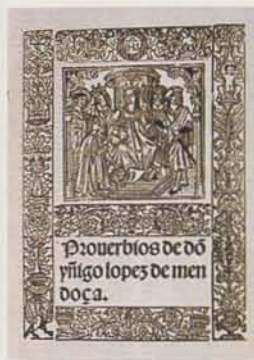 Prouerbios de dõ
yñigo lopez de men
doça.